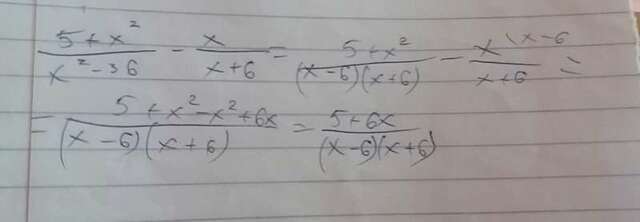 (5+x²)/(x²-36) - x/(x+6) = (5+x²)/((x-6)(x+6)) - x\x-6/(x+6) =
= (5+x²-x²+6x)/((x-6)(x+6)) = (5+6x)/((x-6)(x+6))